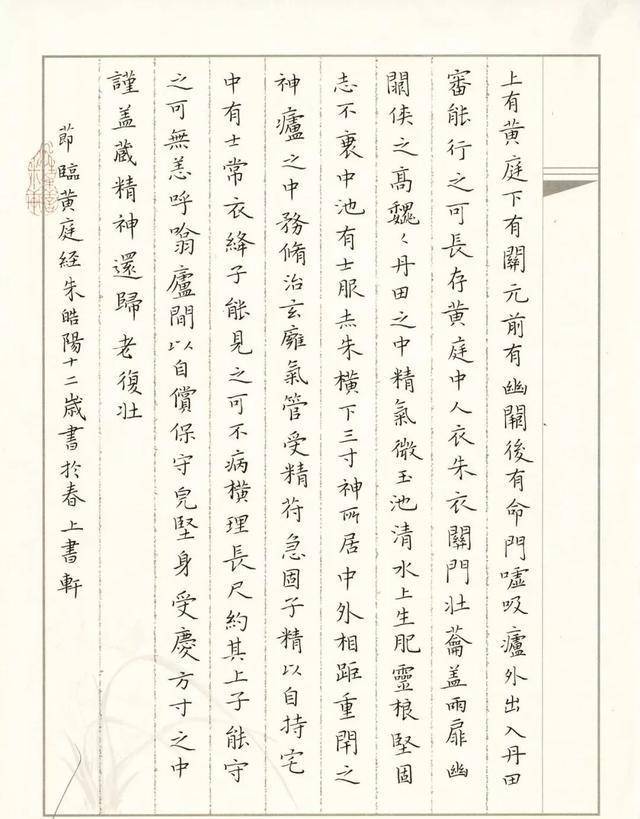 上有黃庭下有關元前有幽闕後有命門噓吸廬外出入丹田
審能行之可長存黃庭中人衣朱衣關門壯蘥盖兩扉幽
闕俠之高魏〻丹田之中精氣微玉池清水上生肥靈根堅固
志不衰中池有士服赤朱橫下三寸神所居中外相距重閇之
神廬之中務脩治玄廱氣管受精苻急固子精以自持宅
中有士常衣絳子能見之可不病橫理長尺約其上子能守
之可無恙呼噏廬間以自償保守皃堅身受慶方寸之中
謹盖藏精神還歸老復壯
節臨黃庭經朱皓陽十二歲書於春上書軒